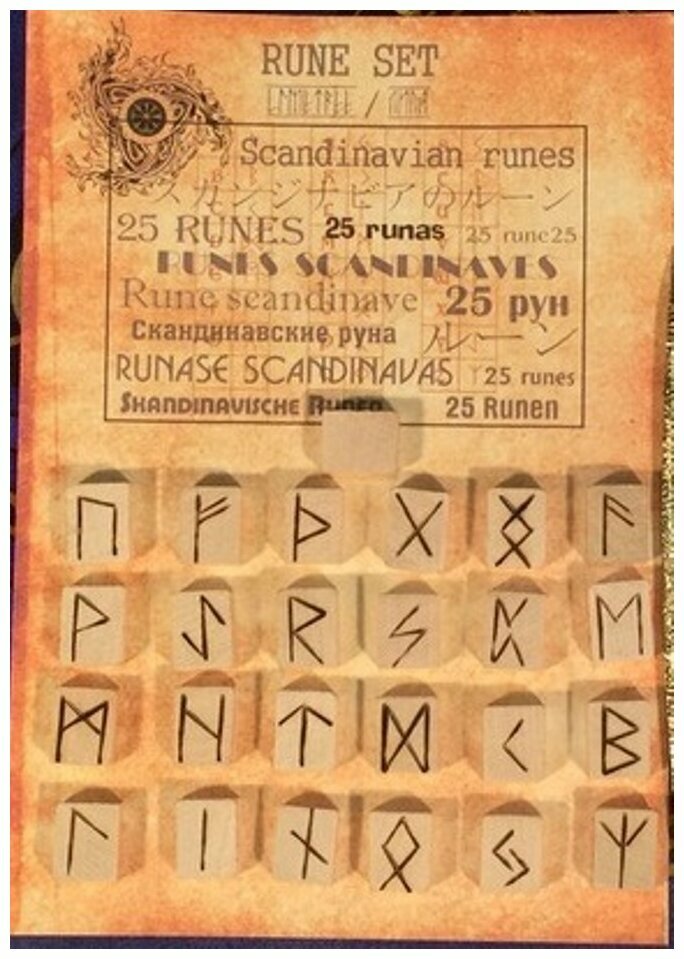 RUNE SET
/
Scandinavian runes
スカンジナビアのルーン
25 RUNES 25 runas 25 rune25
RUNES SCANDINAVES
Rune scandinave 25 рун
Скандинавские руна ルーン
RUNASE SCANDINAVAS 25 runes
SKANDINAVISCHE RUNEN 25 Runen
ᚢ ᚠ ᚦ ᚷ ᛝ ᚨ
ᚹ ᛇ ᚱ ᛊ ᛈ ᛖ
ᛗ ᚺ ᛏ ᛞ ᚲ ᛒ
ᛚ ᛁ ᚾ ᛟ ᛃ ᛉ